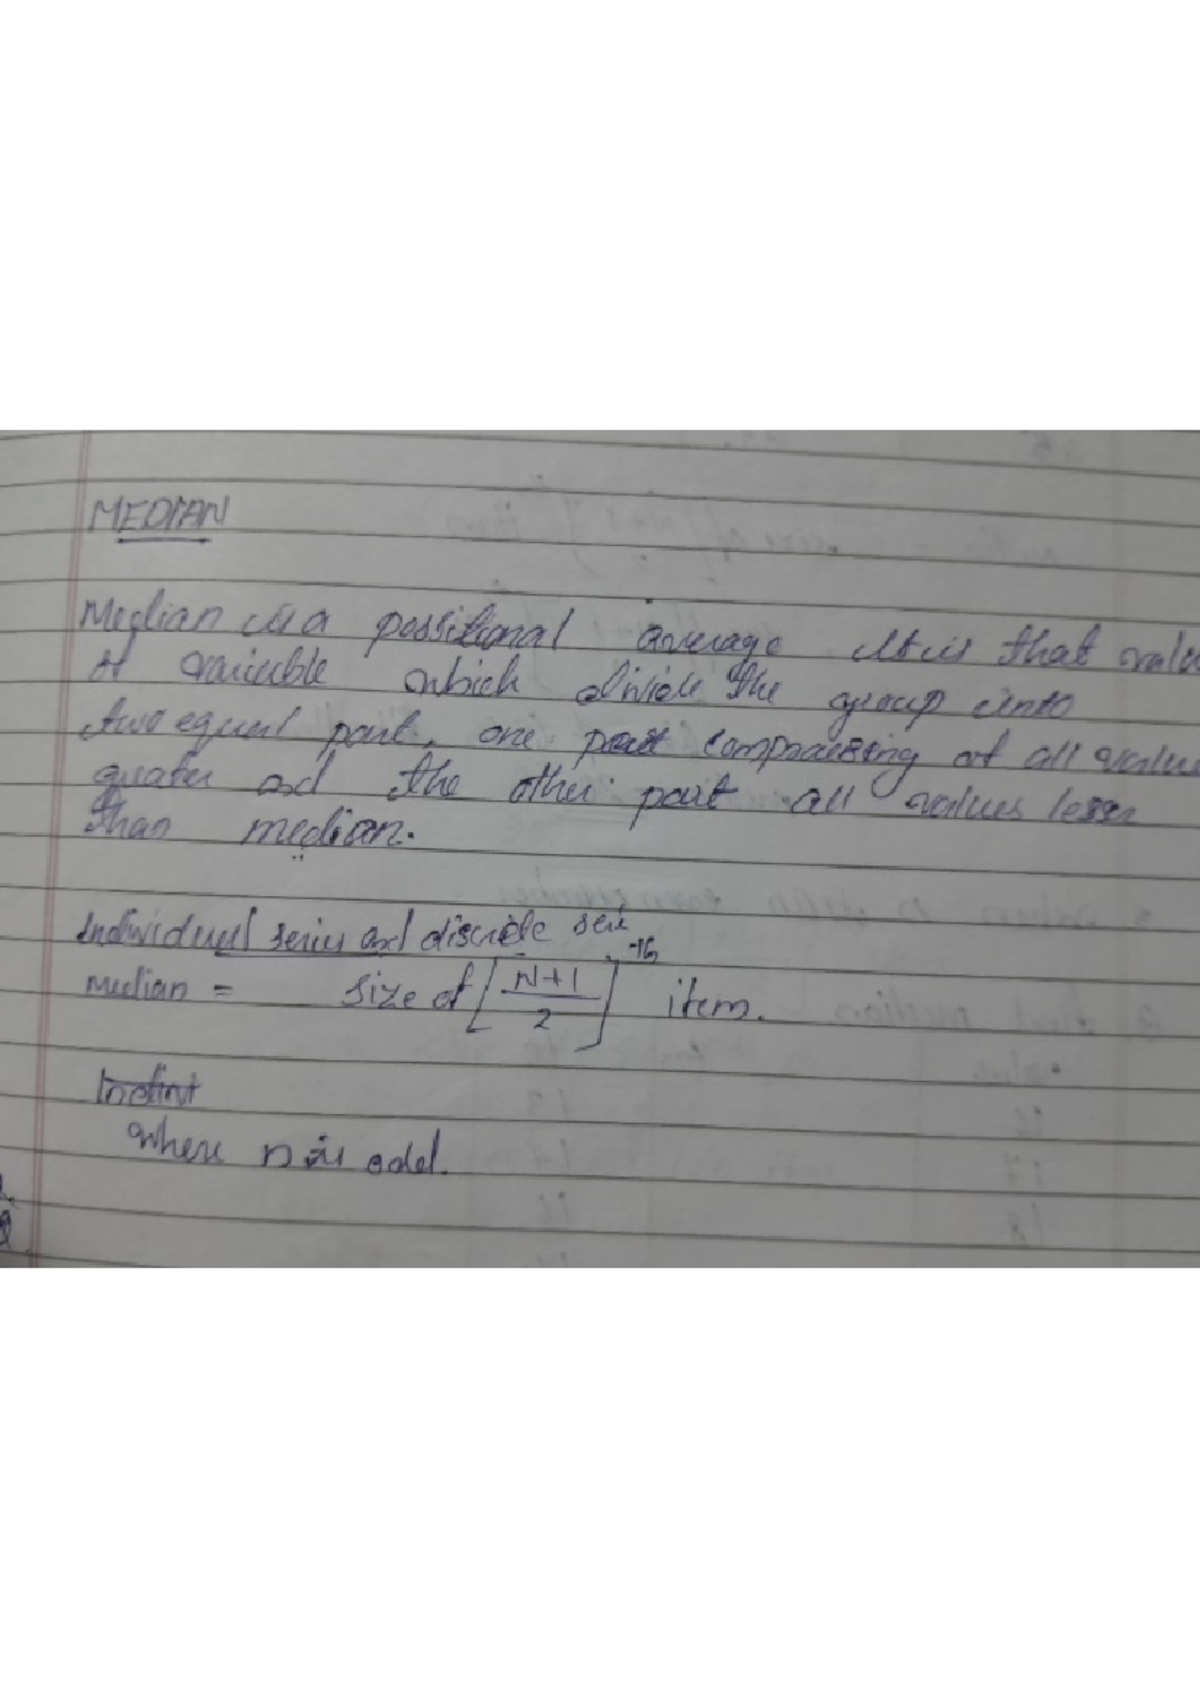 MEDIAN
Median is a possitional average It is that value
of variable which divide the group into
two equal part, one part comprasing of all value
greater and the other part all values lesser
than median.
Individual series and discrete seri
Median = size of [N+1/2]th item.
where n is odd.